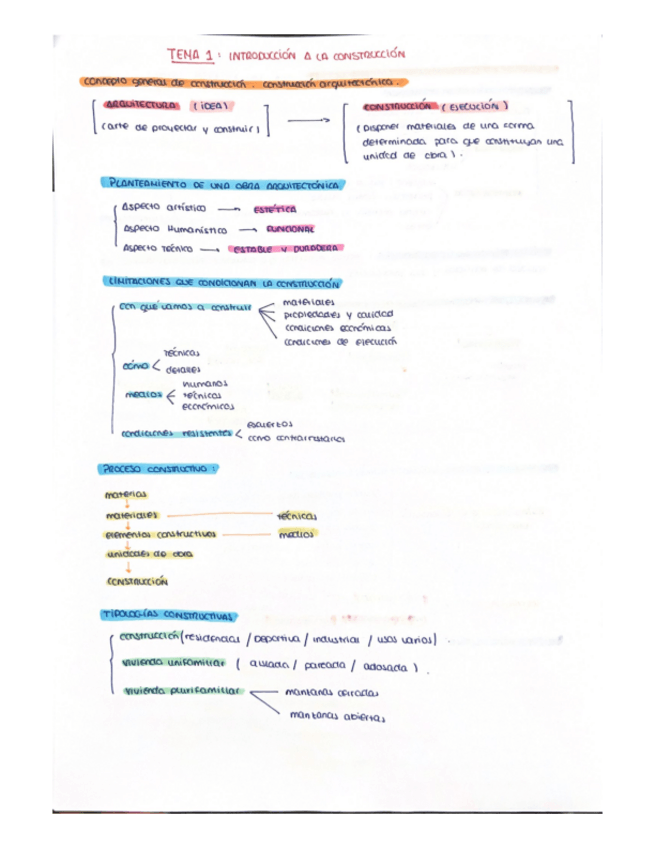 TEMA 1: INTRODUCCIÓN A LA CONSTRUCCIÓN
concepto general de construcción. construcción arquitectónica.
ARQUITECTURA (IDEA)
(arte de proyectar y construir)
CONSTRUCCIÓN (EJECUCIÓN)
(Disponer materiales de una forma
determinada para que constituyan una
unidad de obra).
PLANTEAMIENTO DE UNA OBRA ARQUITECTÓNICA
Aspecto artístico → ESTÉTICA
Aspecto Humanístico → FUNCIONAL
Aspecto técnico → ESTABLE Y DURADERA
LIMITACIONES QUE CONDICIONAN LA CONSTRUCCIÓN
con qué vamos a construir
materiales
propiedades y calidad
condiciones económicas
condiciones de ejecución
cómo
técnicas
detalles
medios
humanos
técnicos
económicos
condiciones resistentes
esfuertos
como contrarrestarlos
PROCESO CONSTRUCTIVO:
materias
materiales
técnicas
elementos constructivos
medios
unidades de obra
CONSTRUCCIÓN
TIPOLOGÍAS CONSTRUCTIVAS
construcción (residencias / Deportiva / industrias / usos varios).
vivienda unifamiliar ( aislada / pareada / adosada ).
vivienda plurifamiliar
manzanas cerradas
manzanas abiertas